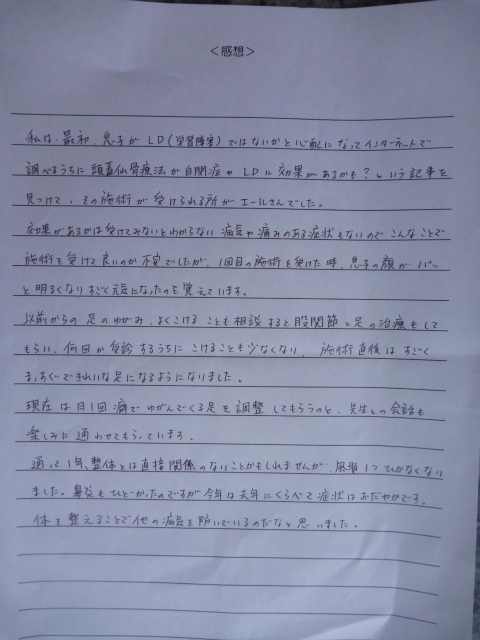 <感想>
私は、最初、息子がLD(学習障害)ではないかと心配になってインターネットで
調べるうちに頭蓋仙骨療法が自閉症やLDに効果があるかも?という記事を
見つけて、その施術が受けられる所がエールさんでした。
効果があるかは受けてみないとわからない病気や痛みのある症状もないのでこんなことで
施術を受けて良いのか不安でしたが、1回目の施術を受けた時、息子の顔がパッ
と明るくなりすごく元気になったのを覚えています。
以前からの足のゆがみ、よくこけることも相談すると股関節と足の治療もして
もらい、何回か受診するうちにこけることも少なくなり、施術直後はすごく
まっすぐできれいな足になるようになりました。
現在は月1回癖でゆがんでくる足を調整してもらうのと、先生との会話も
楽しみに通わせてもらっています。
通って1年、整体とは直接関係のないことかもしれませんが、風邪1つひかなくなり
ました。鼻炎もひどかったのですが今年は去年にくらべて症状はおだやかです。
体を整えることで他の病気を防いでいるのだなと思いました。